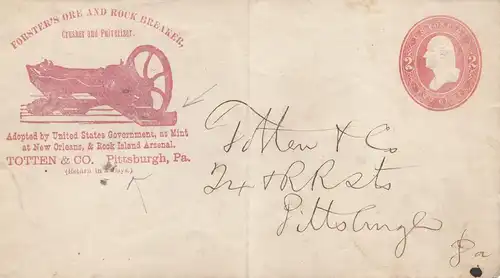 FORSTER'S ORE AND ROCK BREAKER,
Crusher and Pulverizer.
Adopted by United States Government, as Mint
at New Orleans, & Rock Island Arsenal.
TOTTEN & CO. Pittsburgh, Pa.
(Return in days.)
U.S. POSTAGE
2 2
TWO CENTS
Totten & Co
24 & RR Sts
Pittsburgh
Pa